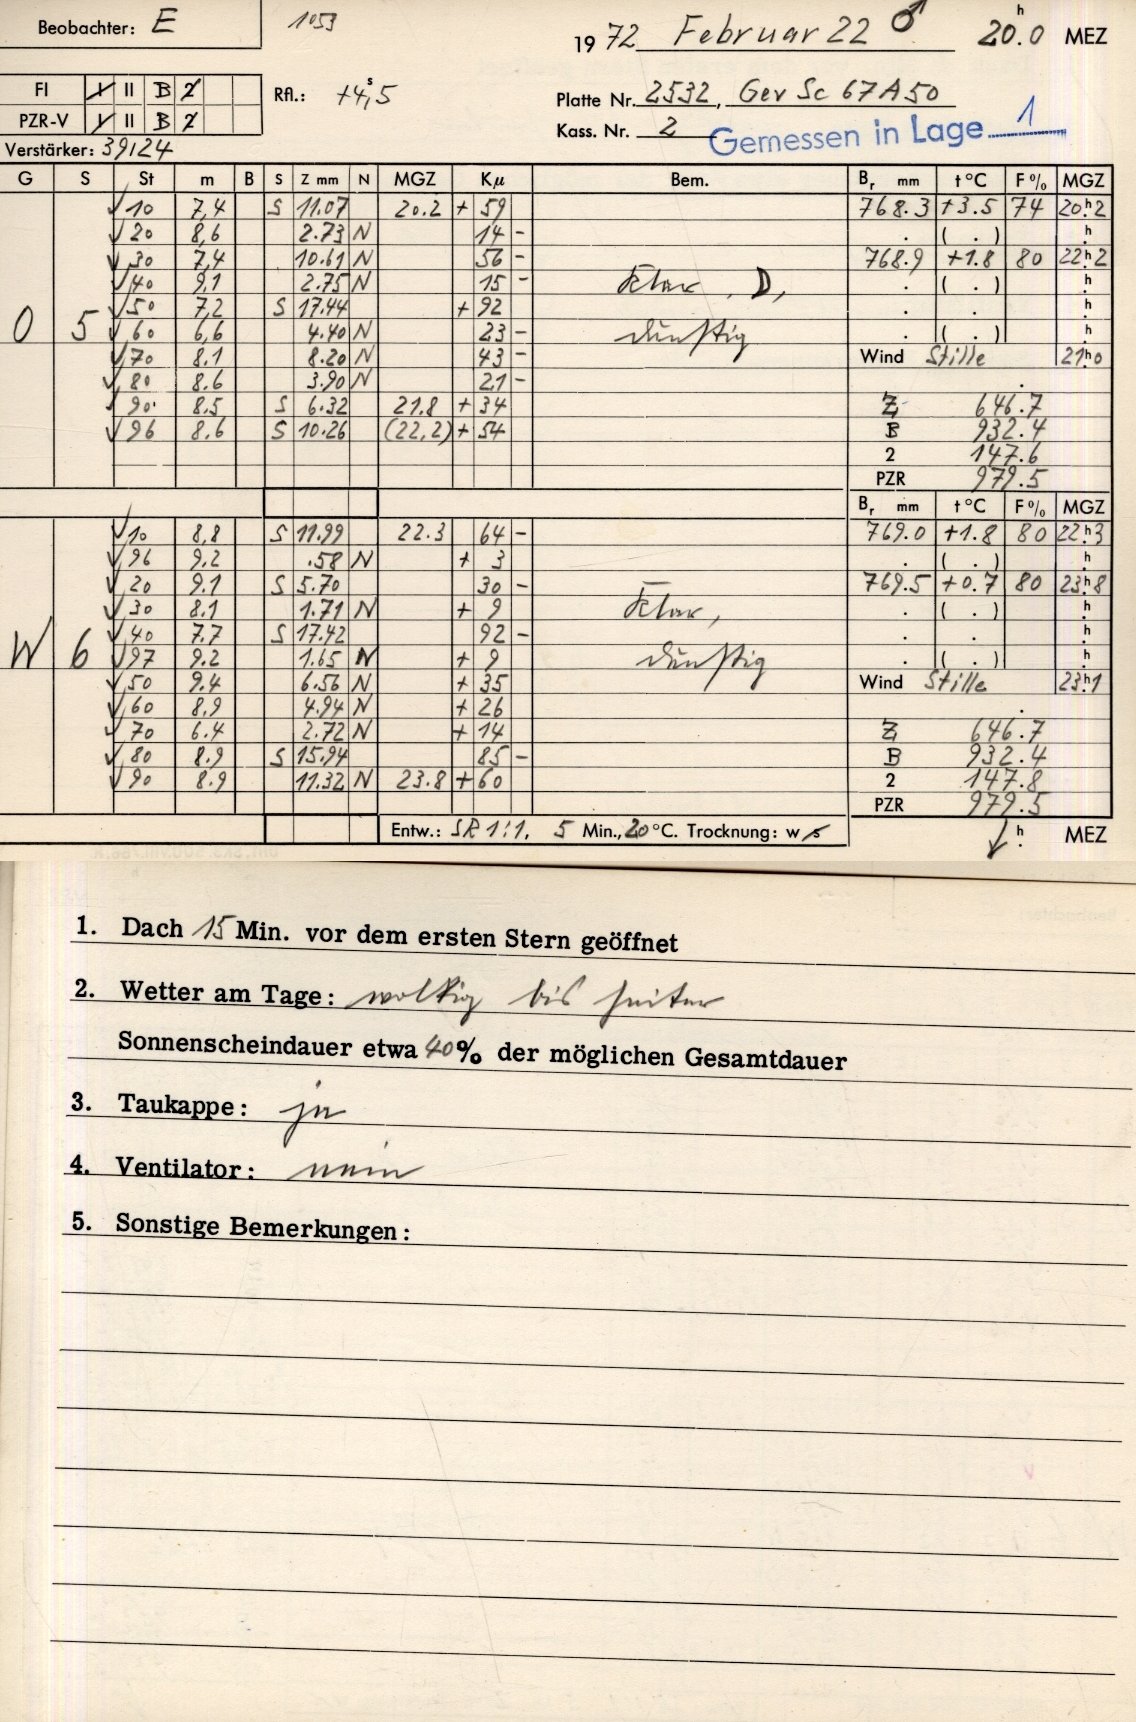 Beobachter: E 1053 1972 Februar 22 ♂ 20.0 h MEZ
FI I II B 2 Rfl.: +4,5 s Platte Nr. 2532, Gev Sc 67A50
PZR-V I II B 2 Kass. Nr. 2 Gemessen in Lage 1
Verstärker: 39/24
G S St m B S Z mm N MGZ Kμ Bem. Br mm t°C F% MGZ
√ 10 7,4 S 11.07 20.2 + 59 768.3 +3.5 74 20h2
√ 20 8,6 2.73 N 14 - . ( . ) h
√ 30 7,4 10.61 N 56 - 768.9 +1.8 80 22h2
√ 40 9,1 2.75 N 15 - Klar, D, . ( . ) h
√ 50 7,2 S 17.44 + 92 . . h
O 5 √ 60 6,6 4.40 N 23 - dunstig . ( . ) h
√ 70 8.1 8.20 N 43 - Wind Stille 21h0
√ 80 8.6 3.90 N 21 - .
√ 90 8.5 S 6.32 21.8 + 34 Z 646.7
√ 96 8.6 S 10.26 (22,2) + 54 B 932.4
2 147.6
PZR 979.5
Br mm t°C F% MGZ
√ 10 8,8 S 11.99 22.3 64 - 769.0 +1.8 80 22h3
√ 96 9.2 .58 N + 3 . ( . ) h
√ 20 9.1 S 5.70 30 - 769.5 +0.7 80 23h8
√ 30 8.1 1.71 N + 9 Klar, . ( . ) h
√ 40 7.7 S 17.42 92 - . . h
W 6 √ 97 9.2 1.65 N + 9 dunstig . ( . ) h
√ 50 9.4 6.56 N + 35 Wind Stille 23h1
√ 60 8,9 4.94 N + 26 .
√ 70 6.4 2.72 N + 14 Z 646.7
√ 80 8.9 S 15.94 85 - B 932.4
√ 90 8.9 11.32 N 23.8 + 60 2 147.8
PZR 979.5
Entw.: SR 1:1, 5 Min., 20 °C. Trocknung: w s h MEZ
1. Dach 15 Min. vor dem ersten Stern geöffnet
2. Wetter am Tage: wolkig bis heiter
Sonnenscheindauer etwa 40% der möglichen Gesamtdauer
3. Taukappe: ja
4. Ventilator: nein
5. Sonstige Bemerkungen: